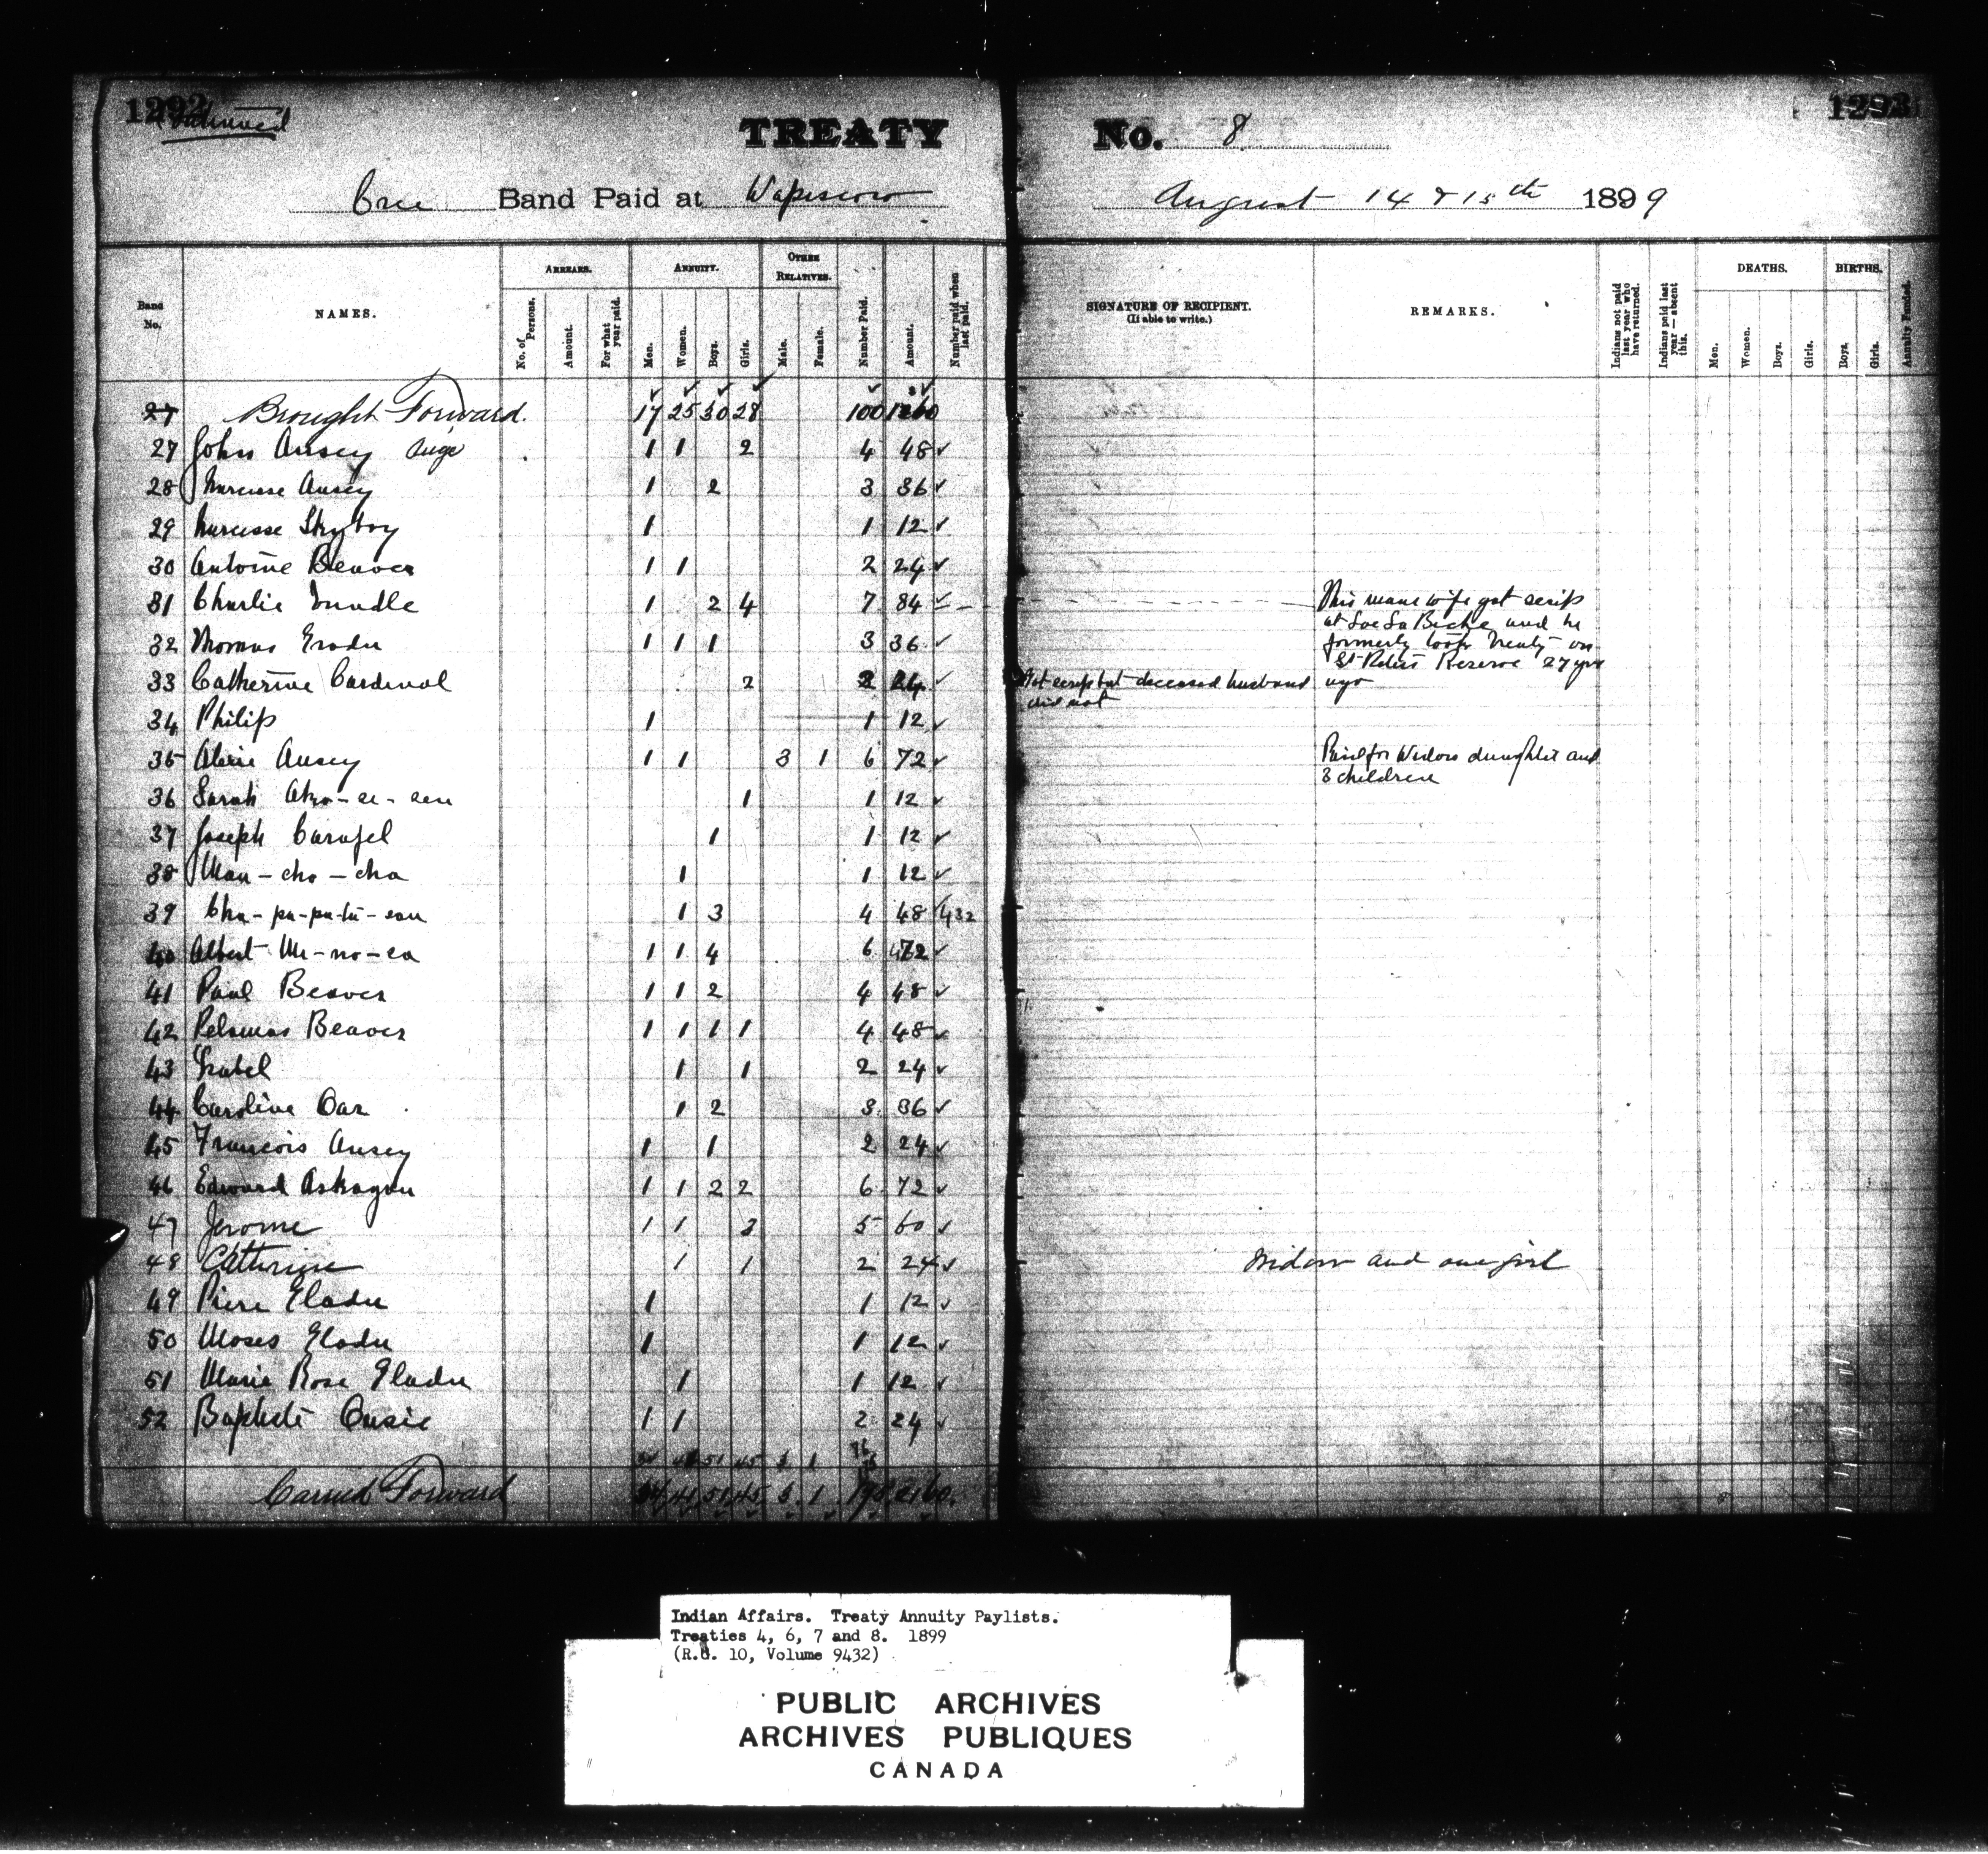 1292 1293
Continued
TREATY No. 8
Cree Band Paid at Wapiscow August 14 & 15th 1899
Band No. NAMES. ARREARS. No. of Persons. Amount. For what year paid. ANNUITY. Men. Women. Boys. Girls. OTHER RELATIVES. Male. Female. Number Paid. Amount. Number paid when last paid. SIGNATURE OF RECIPIENT. (If able to write.) REMARKS. Indians not paid last year who have returned. Indians paid last year — absent this. DEATHS. Men. Women. Boys. Girls. BIRTHS. Boys. Girls. Annuity Funded.
27 Brought Forward. 17 25 30 28 100
27 John Ausey 1 1 2 4 48
28 Narcisse Ausey 1 2 3 36
29 Narcisse Skyboy 1 1 12
30 Antoine Beaver 1 1 2 24
31 Charlie 1 2 4 7 84 This mans wife got scrip
at Lac La Biche and he
formerly took Treaty on
32 Thomas 1 1 1 3 36 Reserve 27 yrs
33 Catherine Cardinal 2 2 24 Got scrip but deceased husband ago
did not
34 Philip 1 1 12
35 Ausey 1 1 3 1 6 72 Paid for Widow daughter and
3 children
36 Sarah 1 1 12
37 Joseph 1 1 12
38 Man-cho-cha 1 1 12
39 1 3 4 48 432
40 Albert Me-no-sa 1 1 4 6 72
41 Paul Beaver 1 1 2 4 48
42 Beaver 1 1 1 1 4 48
43 Isabel 1 1 2 24
44 Caroline Oar 1 2 3 36
45 Francois Ausey 1 1 2 24
46 Edward Askagan 1 1 2 2 6 72
47 Jerome 1 1 3 5 60
48 Catherine 1 1 2 24 Widow and one girl
49 Piere Gladu 1 1 12
50 Moses Gladu 1 1 12
51 Marie Rose Gladu 1 1 12
52 Baptiste 1 1 2 24
Carried Forward 34 41 51 45
Indian Affairs. Treaty Annuity Paylists.
Treaties 4, 6, 7 and 8. 1899
(R.G. 10, Volume 9432)
PUBLIC ARCHIVES
ARCHIVES PUBLIQUES
CANADA